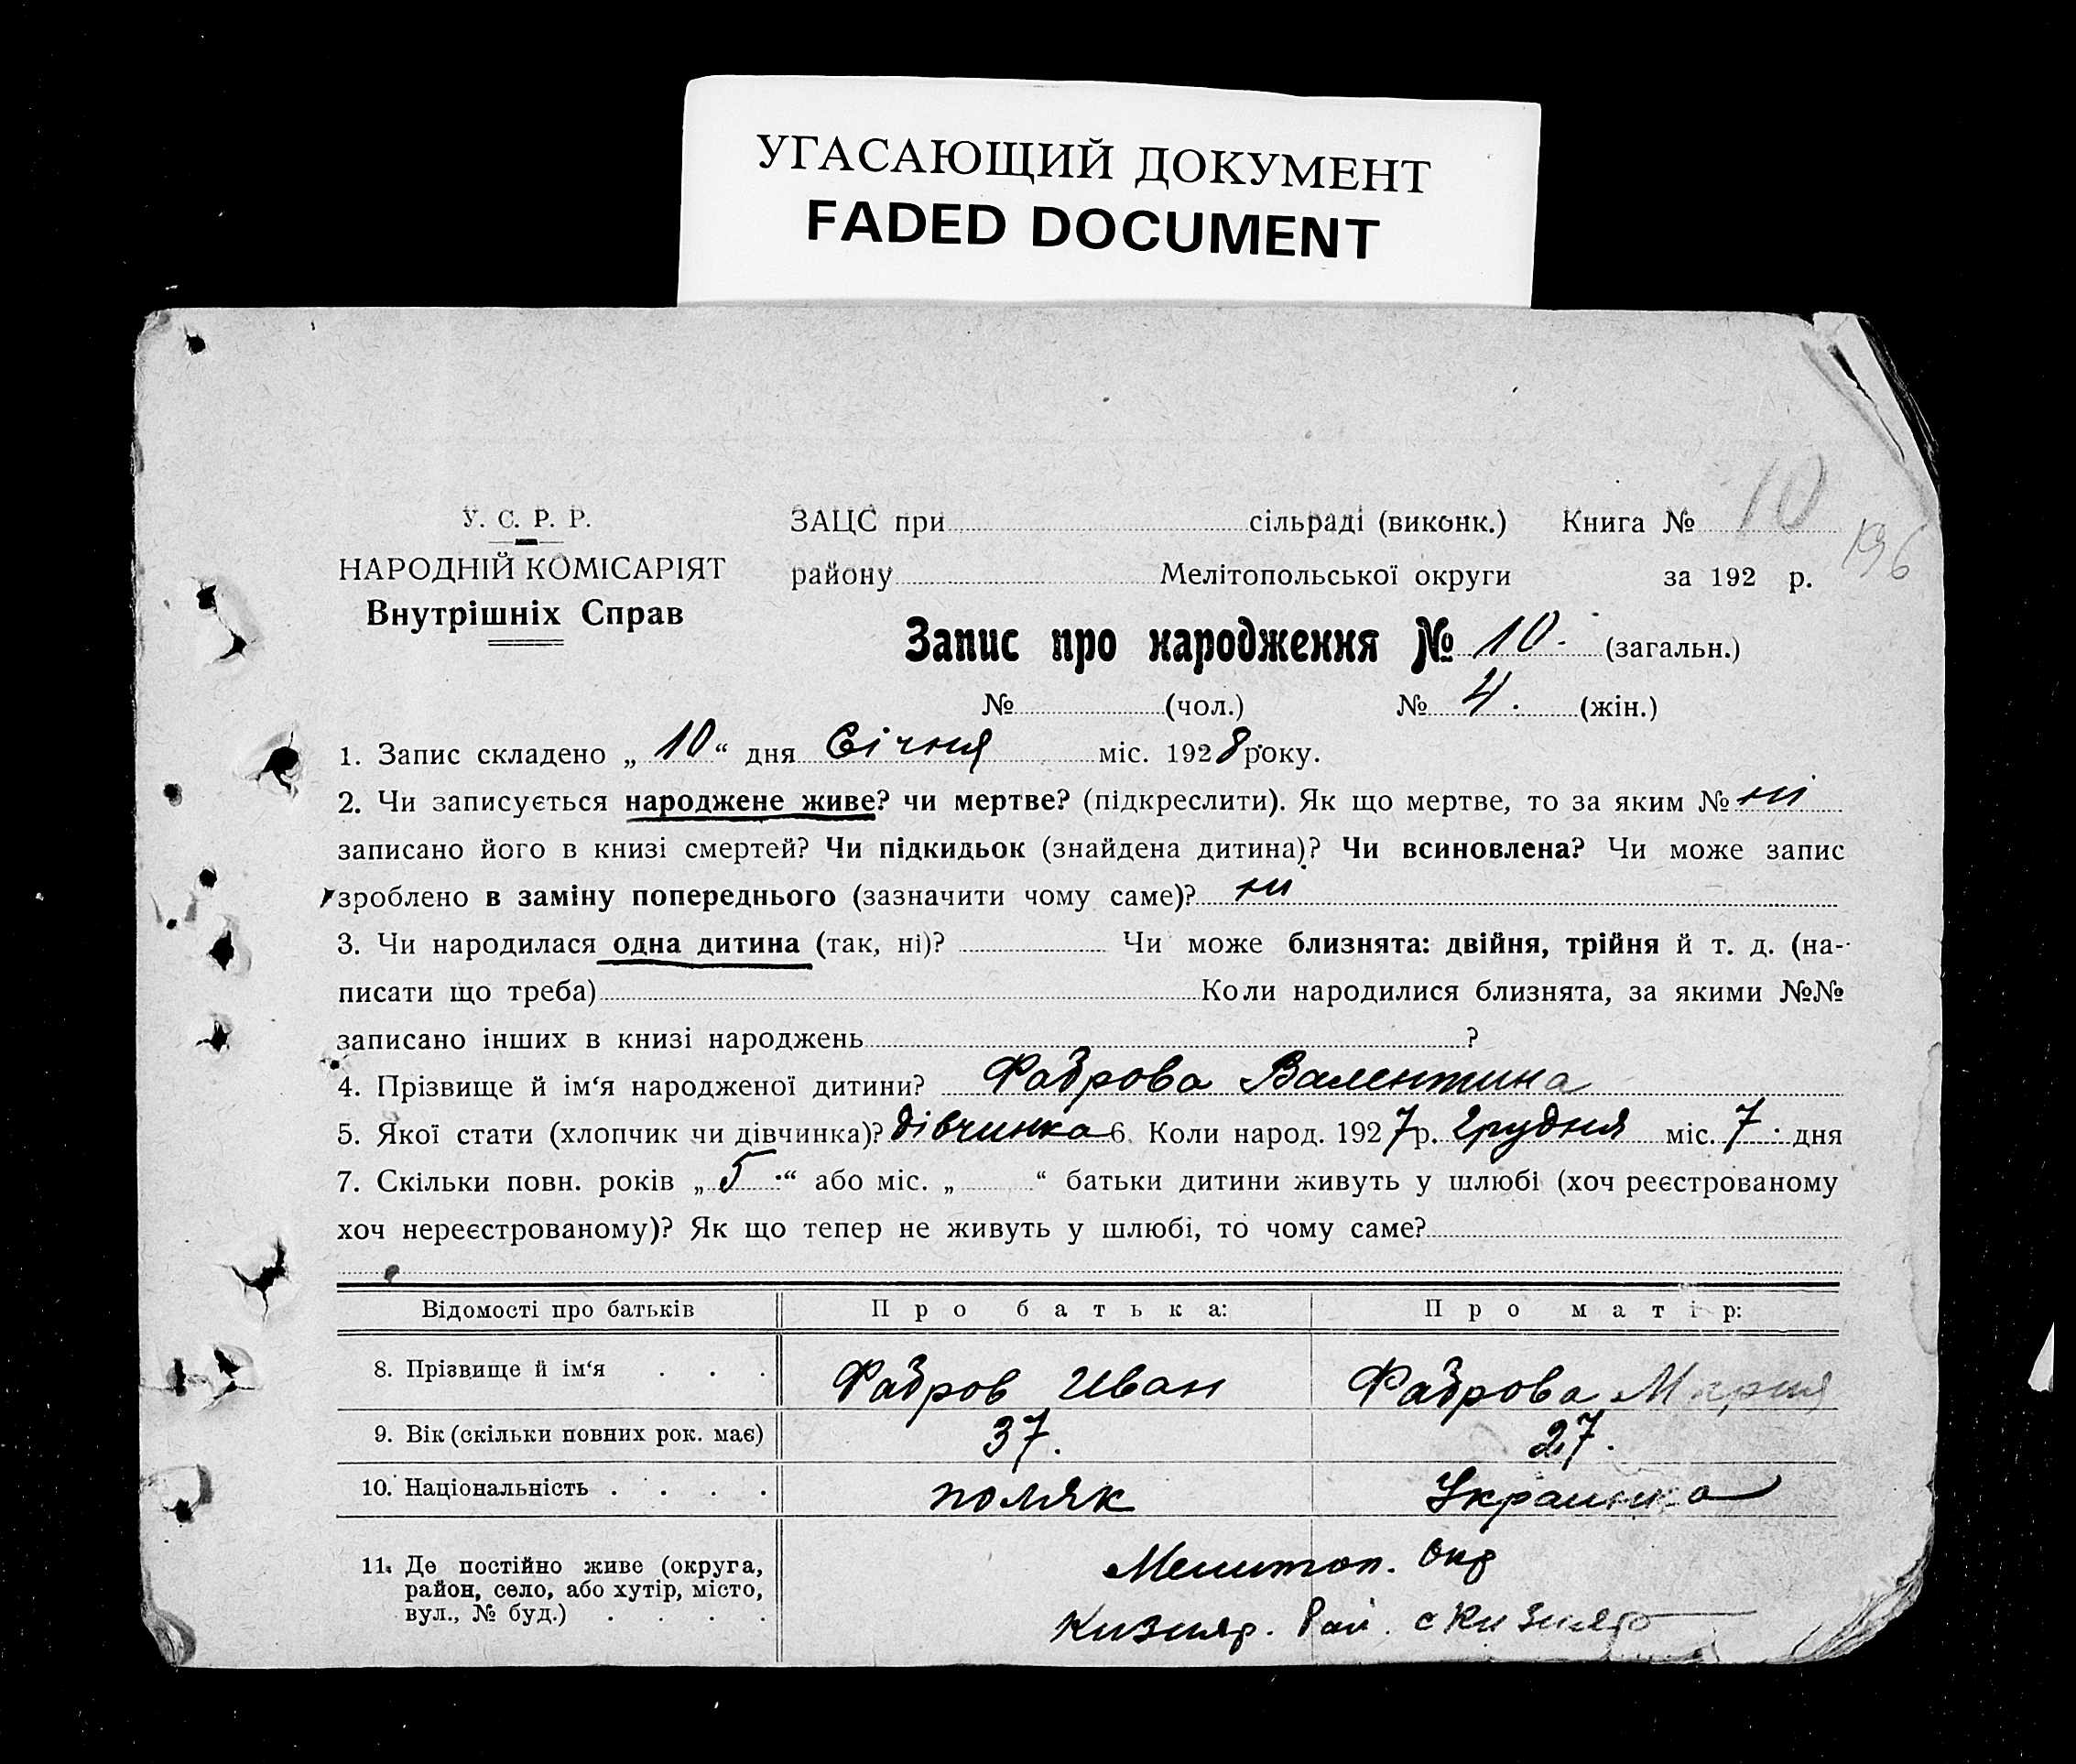 УГАСАЮЩИЙ ДОКУМЕНТ
FADED DOCUMENT
У. С. Р. Р.
НАРОДНІЙ КОМІСАРІЯТ
Внутрішніх Справ
ЗАЦС при сільраді (виконк.) Книга № 10
196
району Мелітопольської округи за 192 р.
Запис про народження № 10. (загальн.)
№ (чол.) № 4. (жін.)
1. Запис складено „ 10 “ дня Січня міс. 1928 року.
2. Чи записується народжене живе? чи мертве? (підкреслити). Як що мертве, то за яким № ні
записано його в книзі смертей? Чи підкидьок (знайдена дитина)? Чи всиновлена? Чи може запис
зроблено в заміну попереднього (зазначити чому саме)? ні
3. Чи народилася одна дитина (так, ні)? Чи може близнята: двійня, трійня й т. д. (на-
писати що треба) Коли народилися близнята, за якими №№
записано інших в книзі народжень ?
4. Прізвище й ім‘я народженої дитини? Фаброва Валентина
5. Якої стати (хлопчик чи дівчинка)? дівчинка 6. Коли народ. 1927 р. грудня міс. 7. дня
7. Скільки повн. років „ 5 “ або міс. „ “ батьки дитини живуть у шлюбі (хоч реєстрованому
хоч нереєстрованому)? Як що тепер не живуть у шлюбі, то чому саме?
Відомості про батьків Про батька: Про матір:
8. Прізвище й ім‘я . . . Фабров Иван Фаброва Мария
9. Вік (скільки повних рок. має) 37. 27.
10. Національність . . . . поляк Украинка
11. Де постійно живе (округа, район, село, або хутір, місто, вул., № буд.) . . . .
Мелитоп. Окр
Кизияр. Рай. с Кизияр